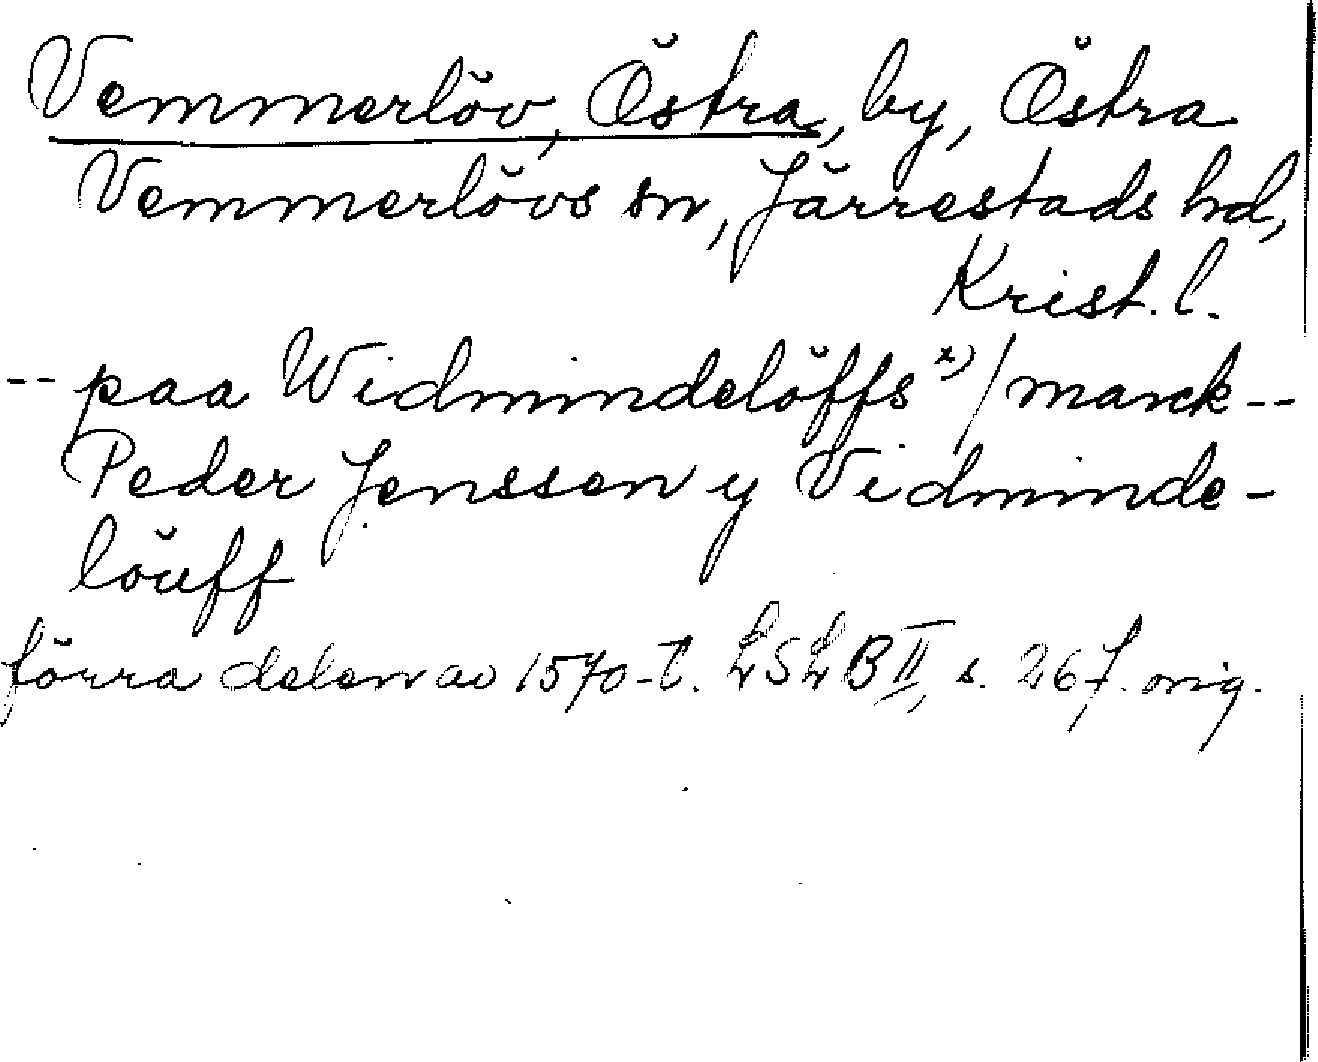 Vemmerlöv, Östra, by, Östra
Vemmerlövs sn, Järrestads hd,
Krist. l.
-- paa Widmindelöffs x) / marck --
Peder Jenssen y Vidminde-
löuff
förra delen av 1570-t. LSLB II, s. 267. orig.